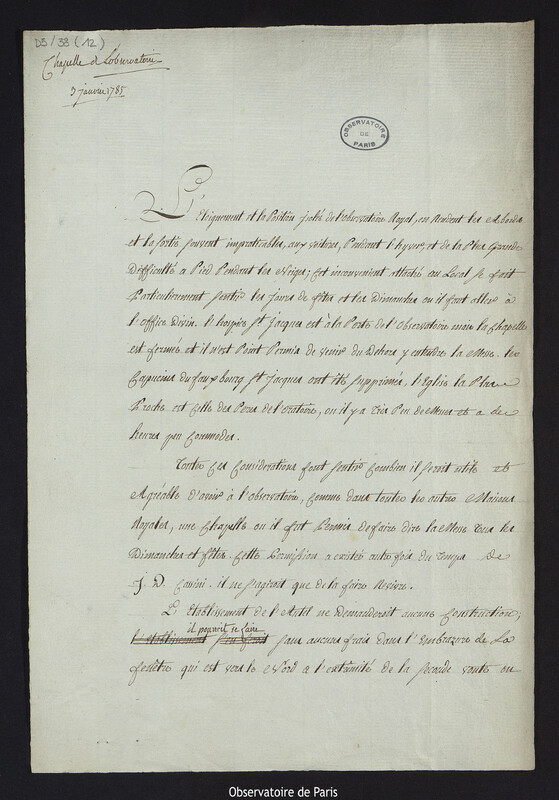 D5/38 (12)
Chapelle de l'observatoire
3 janvier 1785
OBSERVATOIRE
DE
PARIS
L'éloignement et la Position isolé de l'observatoire Royal, en Rendent les abords
et la sortie souvent impraticables, aux voitures, Pendant l'hyver, et de la Plus Grande
Difficulté a Pied Pendant les Neiges; cet inconvenient attaché au Local se fait
Particulierement sentir les jours de fetes et les Dimanches ou il faut aller à
l'office Divin. l'hospice St. Jacques est à la Porte de l'observatoire mais la chapelle
est fermée et il n'est Point Permis de venir du Dehors y entendre la Messe. les
Capucins du faux bourg St. Jacques ont été supprimés, l'Eglise la Plus
Proche est celle des Peres de l'oratoire, ou il y a tres Peu de Messes et a des
heures peu commodes.
Toutes ces considerations font sentir combien il seroit utile et
Agréable d'avoir à l'observatoire, comme dans toutes les autres Maisons
Royales, une chapelle ou il fut Permis de faire dire la Messe tous les
Dimanches et fêtes. cette Permission a existé autrefois du temps de
J. D. Cassini. il ne s'agiroit que de la faire Revivre.
L'Etablissement de l'Autel ne Demanderoit aucune construction;
il pouroit se faire
l'établissement s'en feroit sans aucuns frais dans l'Embrazure de la
fenêtre qui est vers le Nord a l'extrémité de la seconde voute ou